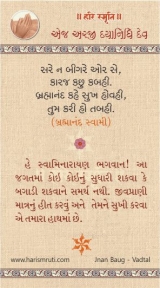 ॥ હરિ સ્મૃતિ ॥
એજ અરજી દયાનિધિ દેવ
સરે ન બીગરે ઓર સે,
કારજ કછુ કબહી.
બ્રહ્માનંદ કહે સુખ હોવહી,
તુમ કરી હો તબહી.
(બ્રહ્માનંદ સ્વામી)
હે સ્વામિનારાયણ ભગવાન! આ
જગતમાં કોઈ કોઈનું સુધારી શકવા કે
બગાડી શકવાને સમર્થ નથી. જીવપ્રાણી
માત્રનું હીત કરવું અને તેમને સુખી કરવા
એ તમારા હાથમાં છે.
www.harismruti.com Jnan Baug - Vadtal